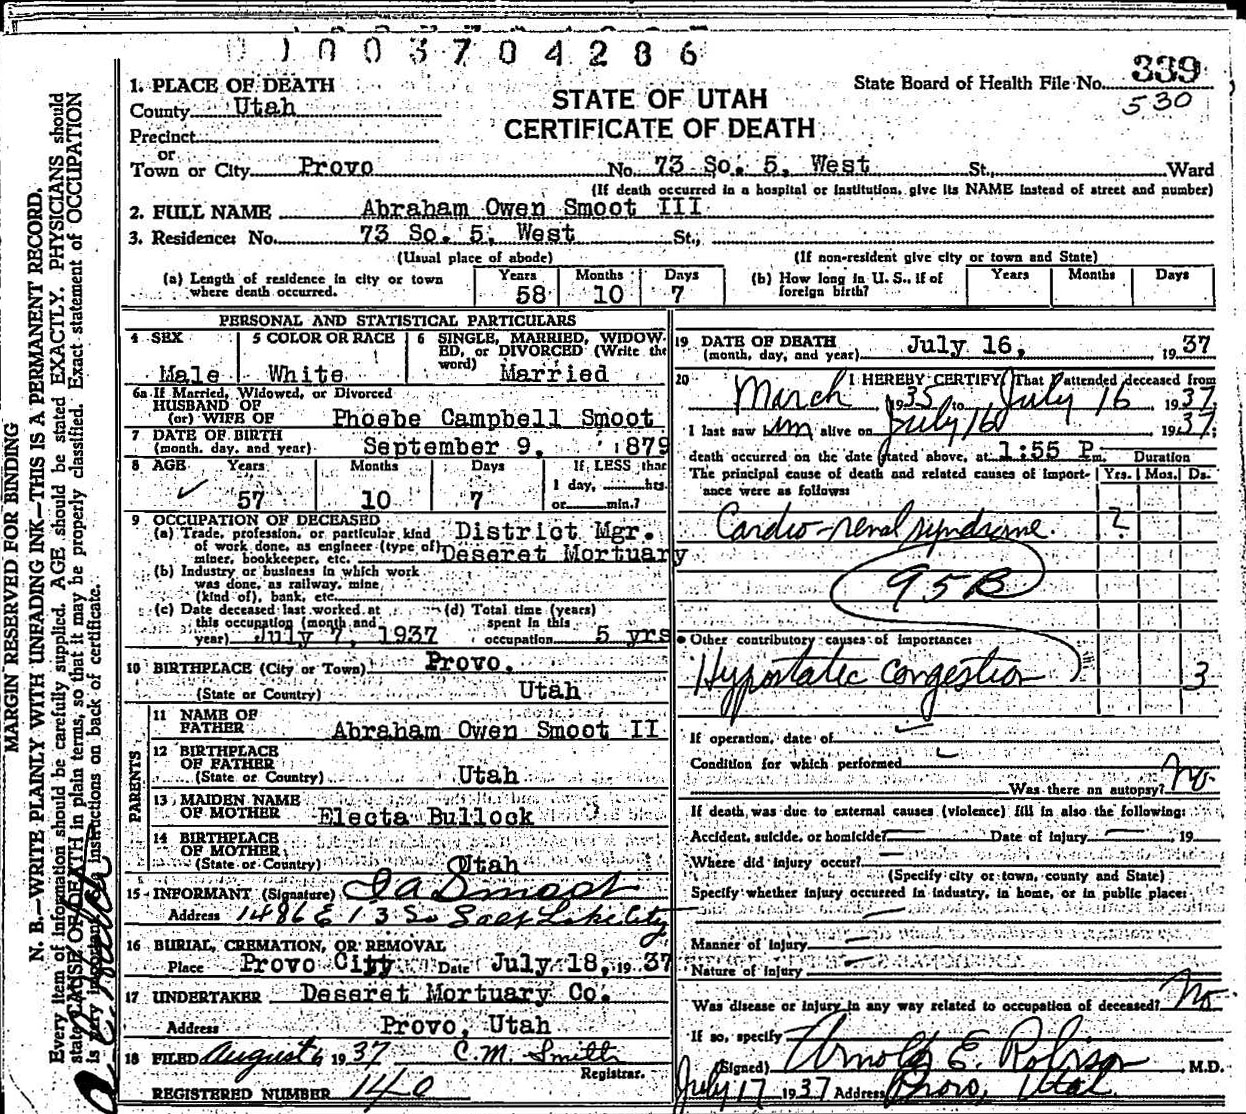 01003704286
1. PLACE OF DEATH
State Board of Health File No. 339
530
County Utah
STATE OF UTAH
CERTIFICATE OF DEATH
Precinct
or
Town or City Provo No. 73 So. 5, West St., Ward
(If death occurred in a hospital or institution, give its NAME instead of street and number)
2. FULL NAME Abraham Owen Smoot III
3. Residence: No. 73 So. 5, West St.,
(Usual place of abode) (If non-resident give city or town and State)
(a) Length of residence in city or town where death occurred. Years 58 Months 10 Days 7
(b) How long in U. S., if of foreign birth? Years Months Days
PERSONAL AND STATISTICAL PARTICULARS
4 SEX Male
5 COLOR OR RACE White
6 SINGLE, MARRIED, WIDOWED, or DIVORCED (Write the word) Married
6a If Married, Widowed, or Divorced
HUSBAND OF
(or) WIFE OF Phoebe Campbell Smoot
7 DATE OF BIRTH
(month, day, and year) September 9, 1879
8 AGE Years 57 Months 10 Days 7 If LESS than 1 day, hrs. or min.?
9 OCCUPATION OF DECEASED
(a) Trade, profession, or particular kind of work done, as engineer (type of) miner, bookkeeper, etc. District Mgr. Deseret Mortuary
(b) Industry or business in which work was done, as railway, mine (kind of), bank, etc.
(c) Date deceased last worked at this occupation (month and year) July 7, 1937
(d) Total time (years) spent in this occupation 5 yrs
10 BIRTHPLACE (City or Town) Provo.
(State or Country) Utah
PARENTS
11 NAME OF FATHER Abraham Owen Smoot II
12 BIRTHPLACE OF FATHER
(State or Country) Utah
13 MAIDEN NAME OF MOTHER Electa Bullock
14 BIRTHPLACE OF MOTHER
(State or Country) Utah
15 INFORMANT (Signature) I A Smoot
Address 1486 E 13 So Salt Lake City
16 BURIAL, CREMATION, OR REMOVAL
Place Provo City Date July 18, 1937
17 UNDERTAKER Deseret Mortuary Co.
Address Provo, Utah
18 FILED August 6 1937 C.M. Smith
Registrar.
REGISTERED NUMBER 140
19 DATE OF DEATH
(month, day, and year) July 16, 1937
20 I HEREBY CERTIFY, That I attended deceased from
March 1935 to July 16 1937
I last saw him alive on July 16 1937;
death occurred on the date stated above, at 1:55 P.m.
Duration
The principal cause of death and related causes of importance were as follows: Yrs. Mos. Ds.
Cardio-renal syndrome. ?
95B
Other contributory causes of importance:
Hypostatic congestion 3
If operation, date of
Condition for which performed
Was there an autopsy? No
If death was due to external causes (violence) fill in also the following:
Accident, suicide, or homicide? Date of injury 19
Where did injury occur?
(Specify city or town, county and State)
Specify whether injury occurred in industry, in home, or in public place:
Manner of injury
Nature of injury
Was disease or injury in any way related to occupation of deceased? No
If so, specify
(Signed) Arnold E. Robison M.D.
July 17 1937 Address Provo, Utah
MARGIN RESERVED FOR BINDING
N. B.—WRITE PLAINLY WITH UNFADING INK—THIS IS A PERMANENT RECORD.
Every item of information should be carefully supplied. AGE should be stated EXACTLY. PHYSICIANS should
state CAUSE OF DEATH in plain terms, so that it may be properly classified. Exact statement of OCCUPATION
is very important. See instructions on back of certificate.